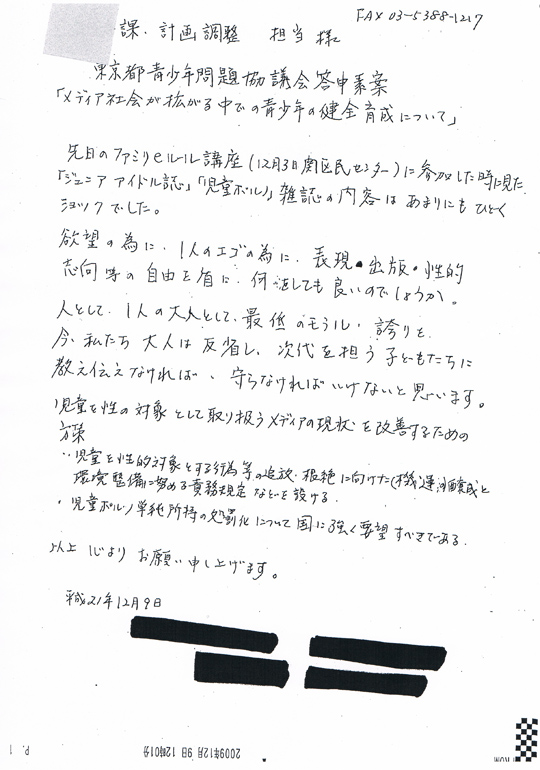 FAX 03-5388-1217
課・計画調整 担当様
東京都青少年問題協議会答申素案
「メディア社会が拡がる中での青少年の健全育成について」
先日のファミリeルール講座(12月3日関区民センター)に参加した時に見た
「ジュニアアイドル誌」「児童ポルノ」雑誌の内容はあまりにもひどく
ショックでした。
欲望の為に、1人のエゴの為に、表現・出版・性的
志向等の自由を盾に、何をしても良いのでしょうか。
人として、1人の大人として、最低のモラル・誇りを
今、私たち大人は反省し、次代を担う子どもたちに
教え伝えなければ、守らなければいけないと思います。
児童を性の対象として取り扱うメディアの現状を改善するための
方策
・児童を性的対象とする行為等の追放・根絶に向けた(機運)醸成と
環境整備に努める責務規定などを設ける。
・児童ポルノ単純所持の処罰化について国に強く要望すべきである。
以上 心よりお願い申し上げます。
平成21年12月9日
2009年12月 9日 12時01分
P. 1